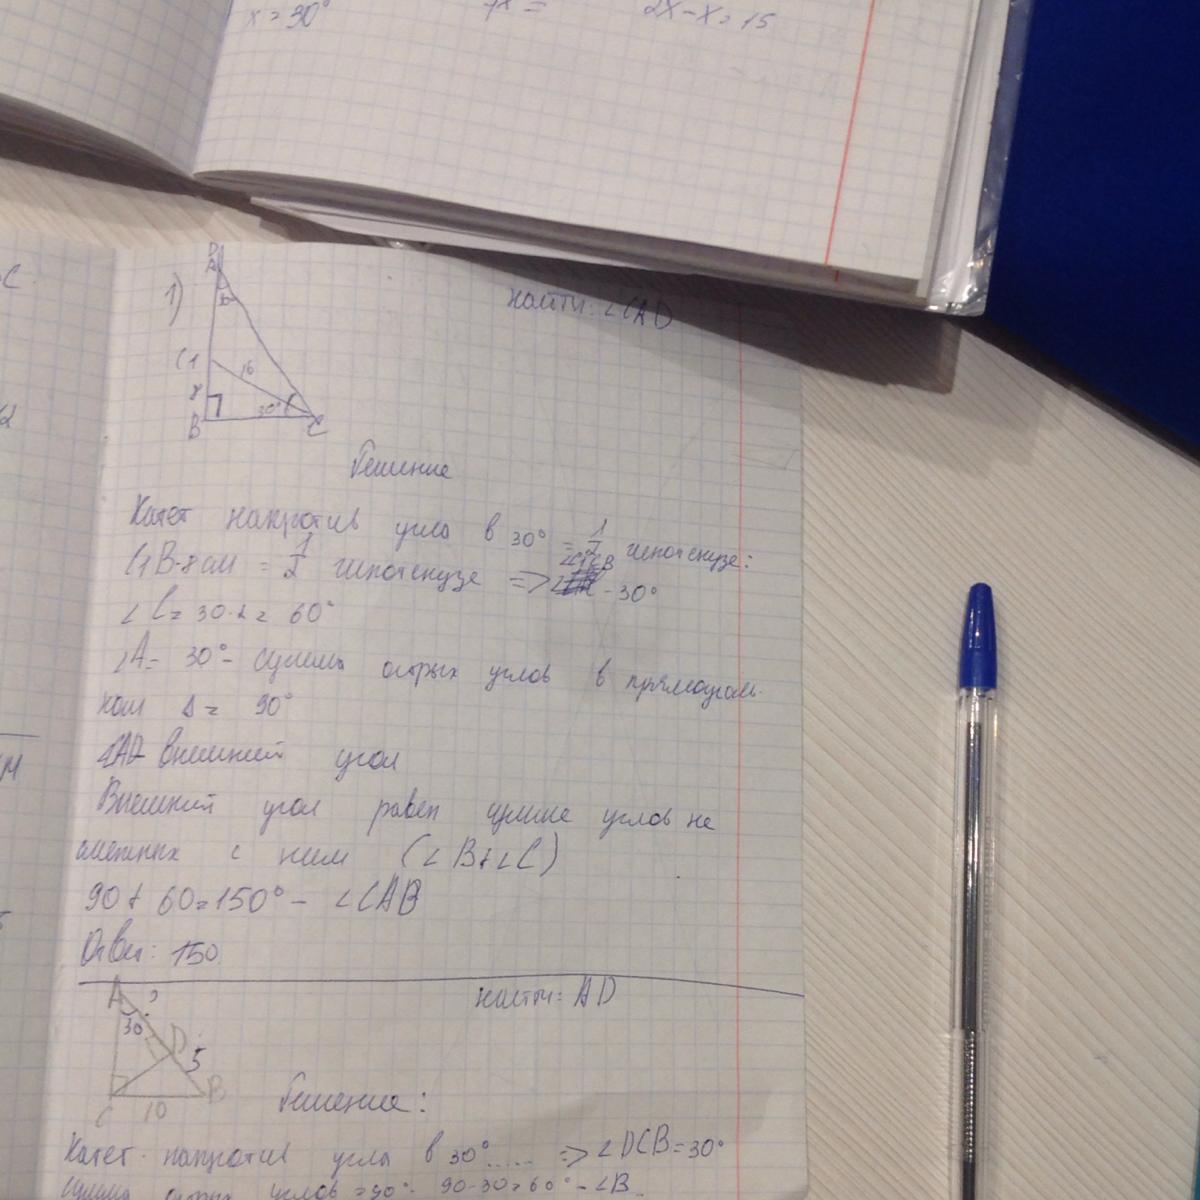 x = 30°
7x =
2x-x=15
1)
найти: ∠CAD
A
C1
16
8
30°
B
C
Решение
Катет напротив угла в 30° = 1/2 гипотенузе:
C1B-8см = 1/2 гипотенузе => ∠C1CB - 30°
∠C= 30·2= 60°
∠A- 30°- сумма острых углов в прямоуголь-
ном Δ= 90°
внешний угол
Внешний угол равен сумме углов не
смежных с ним (∠B+∠C)
90+60=150°- ∠CAB
Ответ: 150
найти: AD
A
?
30°
D
5
C
10
B
Решение:
Катет напротив угла в 30°..... => ∠DCB=30°
сумма острых углов =90° 90-30=60°-∠B